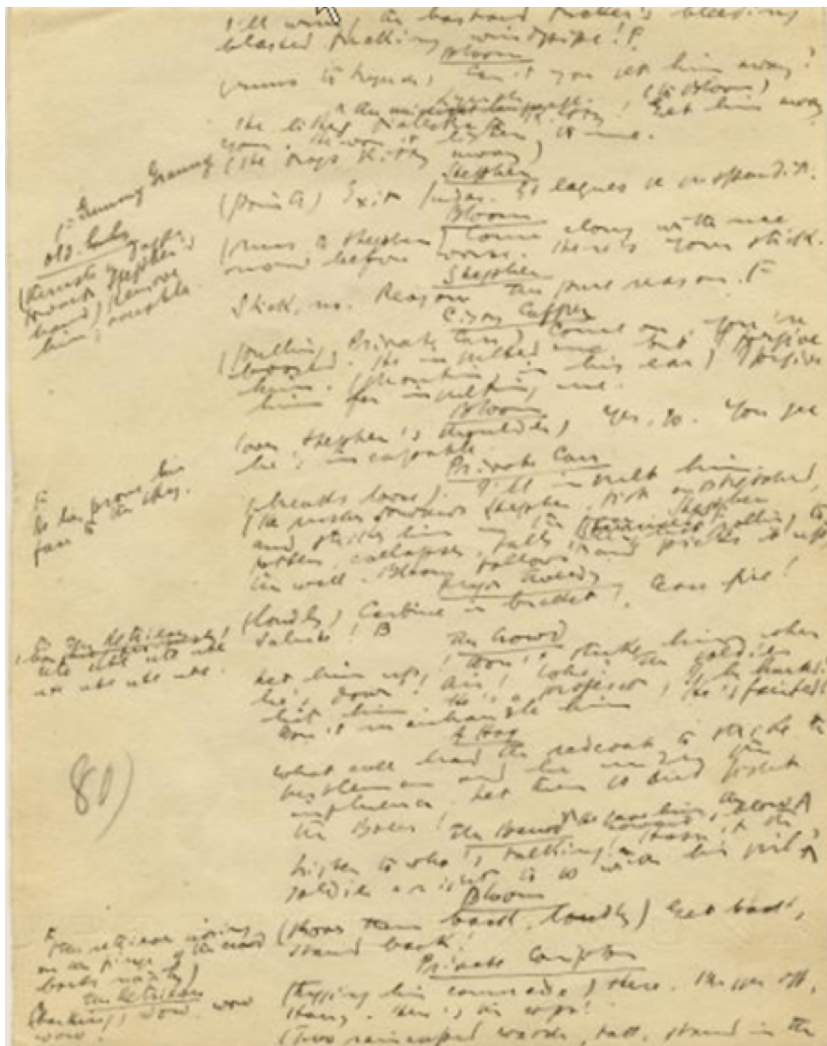 I'll wring the bastard fucker's bleeding
blasted fucking windpipe! F
Bloom
(runs to Lynch) Can't you get him away?
He likes dialectic Kitty! (to Bloom) Get him away
you. He won't listen to me.
(He drags Kitty away)
Stephen
(points) Exit Judas. Et laqueo se suspendit.
Bloom
(runs to Stephen) Come along with me
now before worse. Here's your stick.
Stephen
Stick, no. Reason. This pure reason. F
Cissy Caffrey
(pulling Private Carr) Come on, you're
boozed. He insulted me but I forgive
him. (shouting in his ear) I forgive
him for insulting me.
Bloom
(over Stephen's shoulder) Yes, go. You see
he's incapable.
Private Carr
(breaks loose) I'll insult him.
(He rushes towards Stephen, fist outstretched,
and strikes him in the Stephen
totters, collapses, falls
the wall. Bloom follows and picks it up)
Major Tweedy
(loudly) Carbine in bucket! Cease fire!
Salute! B
The Crowd
Let him up! Don't strike him when
he's down! Air! Who? The soldier
hit him. He's a professor. Is he hurted?
Don't manhandle him. He's fainted
A Hag
What call had the redcoat to strike the
gentleman and he under the
influence. Let them go and fight
the Boers!
The Bawd
Listen to who's talking! Hasn't the
soldier a right to go with his girl?
Bloom
(shoves them back, loudly) Get back,
stand back!
Private Compton
(tugging his comrade) Here. Bugger off,
Harry. Here's the cops!
(Two raincaped watch, tall, stand in the
Old Gummy Granny
(thrusts a dagger
towards Stephen's
hand) Remove
him, acushla.
F
face to the sky.
The Retriever
ute ute ute ute
ute ute ute ute.
80)
The retriever nosing
on the fringe of the crowd
barks noisily)
The Retriever
(barking) wow wow
wow.